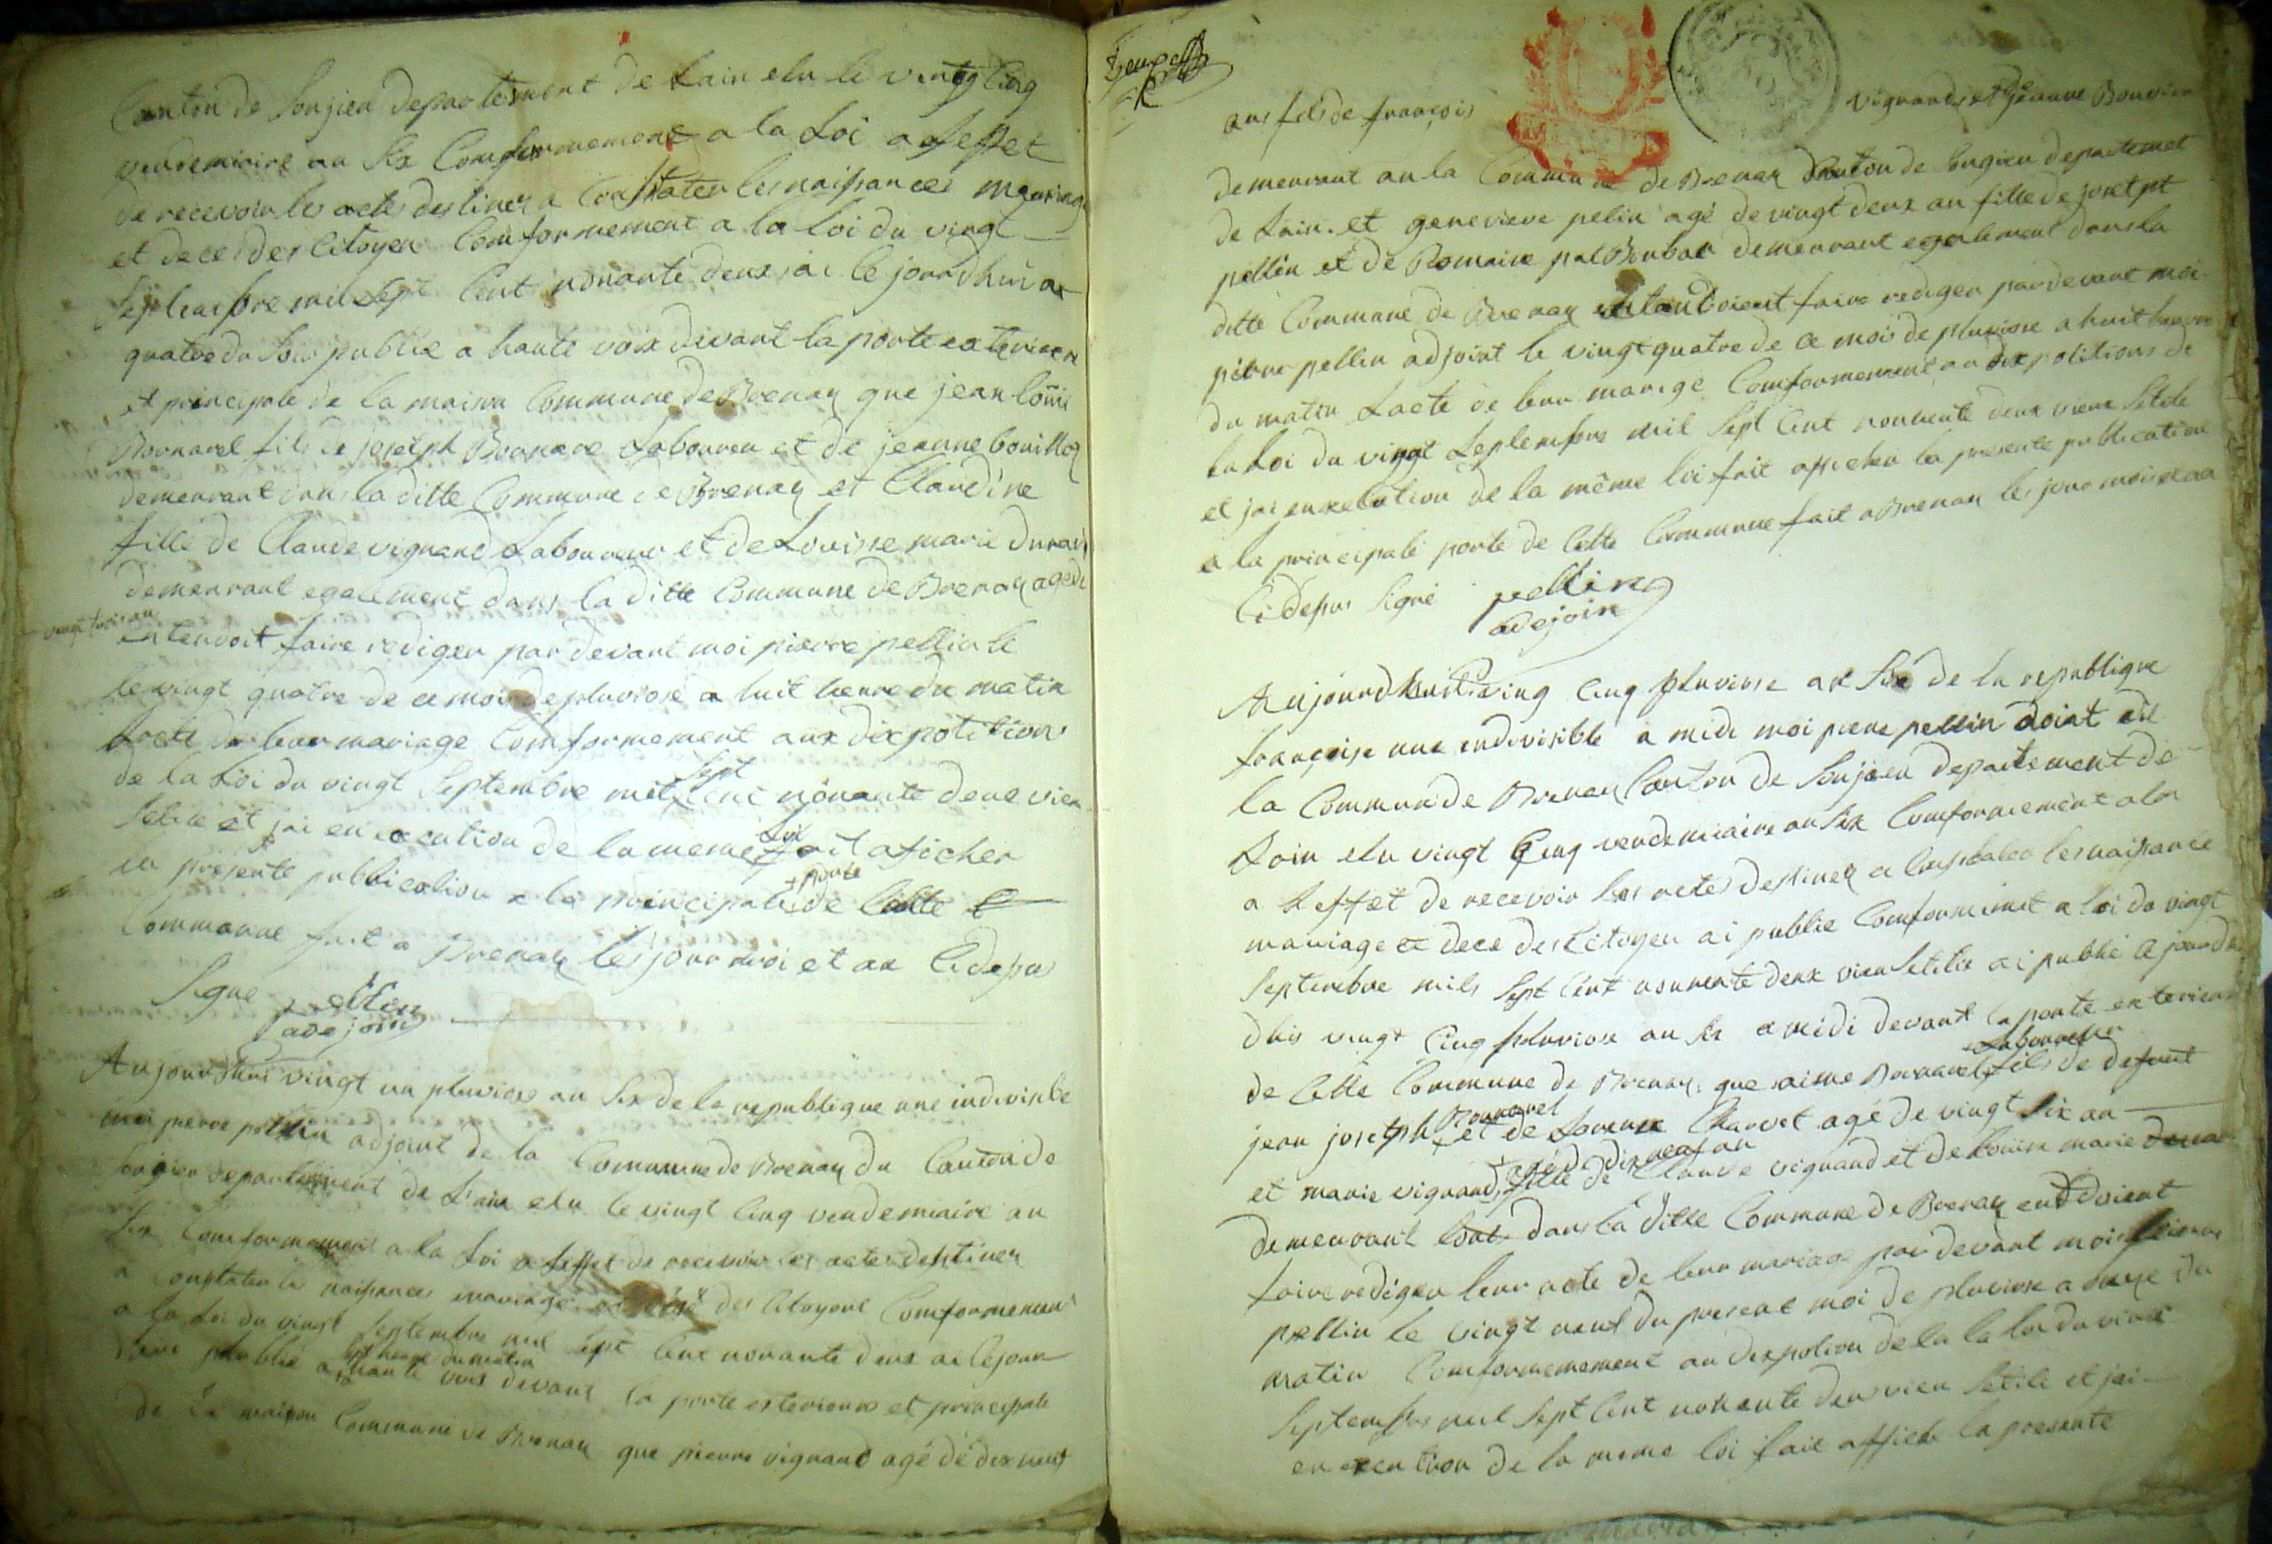 Canton de Sonjieu departement de Lain elu le vingt Cinq
vendemiaire an six Comformement a la Loi a leffet
de recevoir les actes destinez a Constater les naissances mariage
et deces des Citoyen Comformement a la loi du vingt
Septembre mil Sept Cent nonante deux ai le jourdhui
quatre du publie a haute voix devant la porte exterieure
et principale de la maison Commune de Brenaz que jean
fils de joseph Laboureur et de jeanne
demeurant dans la ditte Commune de Brenaz et Claudine
fille de Claude vignand Laboureur et de Louisse marie
demeurant egalement dans la ditte Commune de Brenaz agé de
vingt trois an
entenvoit faire rediger par devant moi pierre pellin le
le vingt quatre de ce mois de pluviose a huit heure du matin
Lacte de leur mariage Comformement aux dixpotitions
de la Loi du vingt Septembre mil Sept Cent nonante deux vieu
Setile et jai en execution de la meme Loi fait aficher
la presente publication a la principale porte de Cette
Commune fait a Brenaz les jour moi et an Cidessus
Signé pellin
adejoin
Aujourdhui vingt un pluviose an six de la republique une indivisible
moi pierre pellin adjoint de la Commune de Brenaz du Canton de
Songieu departement de Lain elu le vingt Cinq vendemiaire an
six Comformement a la Loi a leffet de recevoir les actes destinez
a Constater les naissances mariage et des Citoyens Comformement
a la Loi du vingt Septembre mil sept Cent nonante deux ai lejour
publié a sept heure du matin a haute voix devant la porte exterieure et principale
de la maison Commune de Brenaz que pierre vignand agé de dix neuf
ans fils de françois vignand et jeanne
demeurant an la Commune de Brenaz Canton de Songieu departemet
de Lain et genevieve pelin agé de vingt deux an fille de josetpt
pellin et de Romaine demeurant egalement dans la
ditte Commune de Brenaz faire rediger pardevant moi
pierre pellin adjoint le vingt quatre de ce mois de pluviose a huit heure
du matin Lacte de leur mariage Comformement au dixpotitions de
la Loi du vingt Septembre mil Sept Cent nonante deux vieux Setile
et jai en de la même loi fait afficher la presente publication
a la principale porte de Cette Commune fait a Brenaz les jour mois et an
Cidessus Signé pellin
adejoin
Aujourdhuit ving Cinq pluviose an Six de la republique
françoise une endivisible a midi moi pierre pellin adoint de
la Commun de Brenaz Canton de Sonjieu departement de
Lain elu vingt Cinq vendemiaire an six Comformement a la
a Leffet de recevoir les actes destinez a Constater les naissance
mariage et dece des Citoyen ai publie Comformement a loi du vingt
Septembre mils Sept Cent nonante deux vieu Setile ai publié le jour
dhui vingt Cinq pluviose an six a midi devant la porte exterieur
de Cette Commune de Brenaz que aime Laboureur fils de defunt
jean josetph et de Charvet agé de vingt six an
et marie vignand agé de dix neuf an fille de Claude vignand et de Louise marie
demeurant dans la ditte Commune de Brenaz
faire rediger leur acte de leur mariage par devant moi pierre
pellin le vingt neuf du present moi de pluviose a du
matin Comformemement au dixpotion de la la loi du vingt
Septembre mil Sept Cent nonante deux vieu Setile et jai
en execution de la meme loi fait affiche la presente